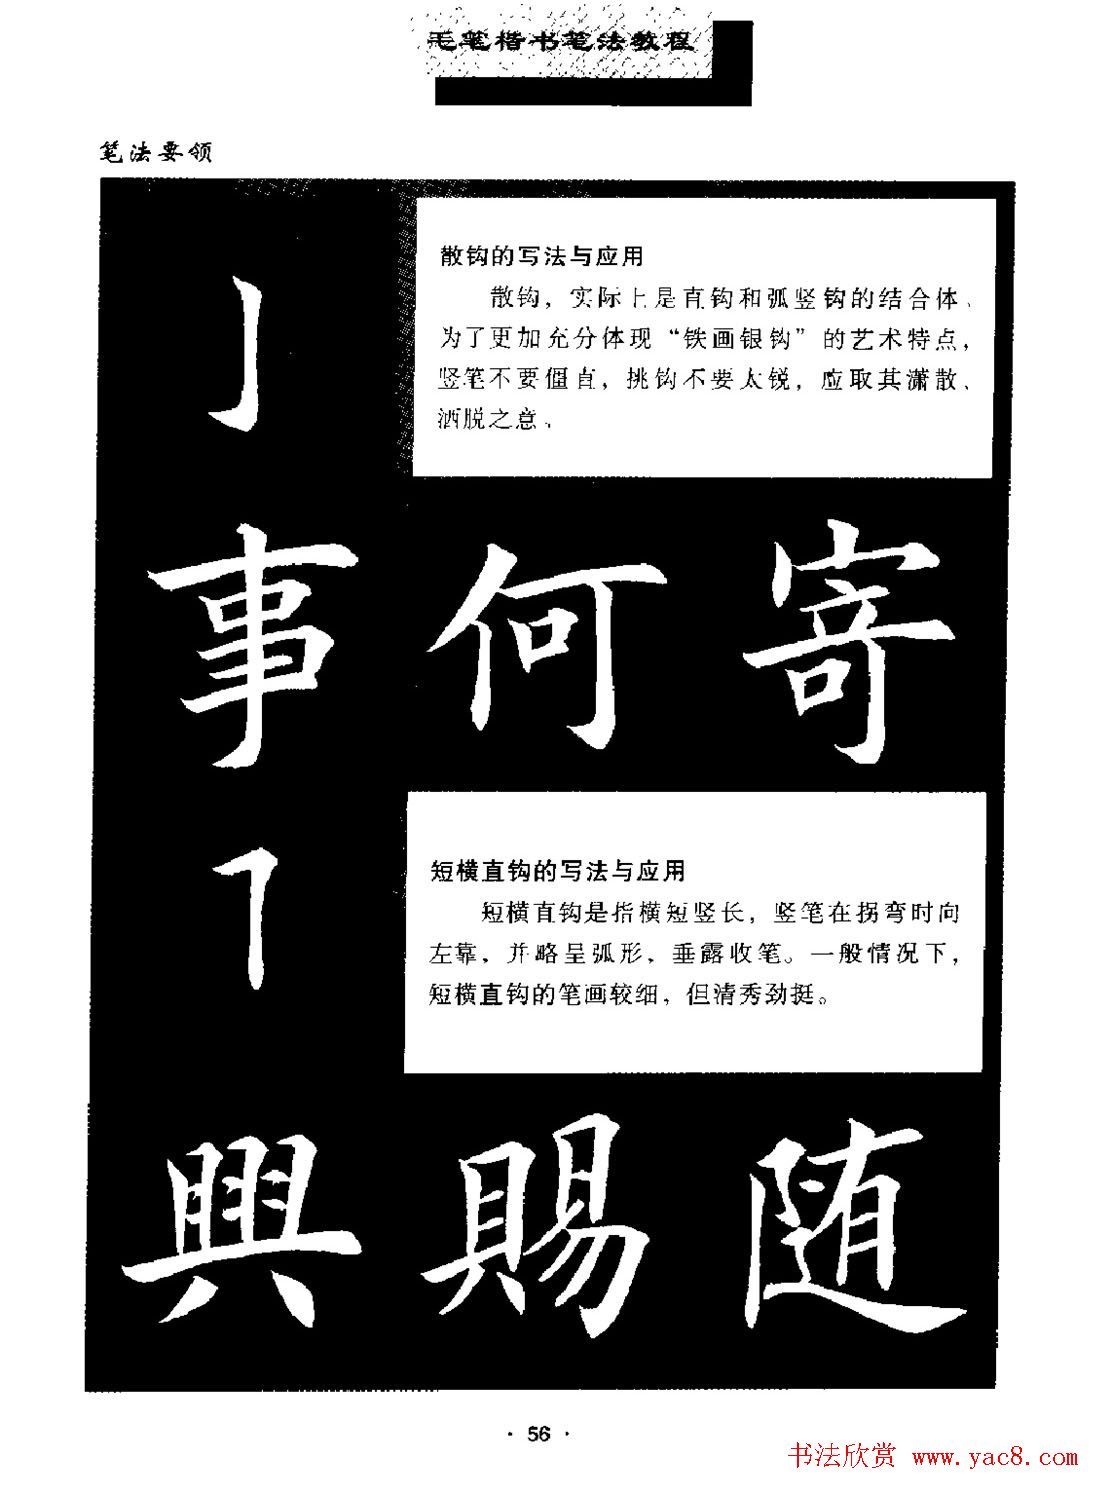 毛笔楷书笔法教程
笔法要领
散钩的写法与应用
散钩，实际上是直钩和弧竖钩的结合体、
为了更加充分体现“铁画银钩”的艺术特点，
竖笔不要僵直，挑钩不要太锐，应取其潇散、
洒脱之意、
事 何 寄
短横直钩的写法与应用
短横直钩是指横短竖长，竖笔在拐弯时向
左靠，并略呈弧形，垂露收笔。一般情况下，
短横直钩的笔画较细，但清秀劲挺。
興 賜 随
· 56 ·
书法欣赏 www.yac8.com